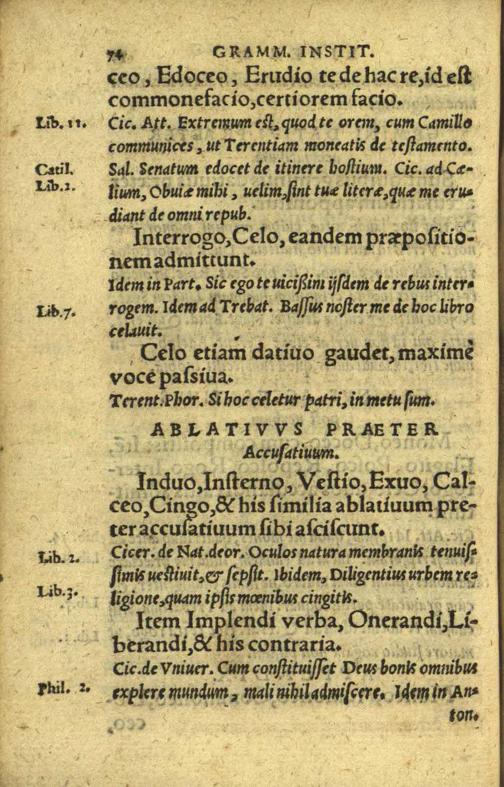 74 GRAMM. INSTIT.
ceo, Edoceo, Erudio te de hac re, id est
commonefacio, certiorem facio.
Lib. 11. Cic. Att. Extremum est, quod te orem, cum Camillo
communices, ut Terentiam moneatis de testamento.
Catil. Sal. Senatum edocet de itinere hostium. Cic. ad Cæ-
Lib. 2. lium, Obuiæ mihi, uelim, sint tuæ literæ, quæ me eru-
diant de omni repub.
Interrogo, Celo, eandem præpositio-
nem admittunt.
Idem in Part. Sic ego te uicißim ijsdem de rebus inter-
Lib. 7. rogem. Idem ad Trebat. Bassus noster me de hoc libro
celauit.
Celo etiam datiuo gaudet, maximè
voce passiua.
Terent. Phor. Si hoc celetur patri, in metu sum.
ABLATIVVS PRAETER
Accusatiuum.
Induo, Insterno, Vestio, Exuo, Cal-
ceo, Cingo, & his similia ablatiuum pre-
ter accusatiuum sibi asciscunt.
Lib. 2. Cicer. de Nat. deor. Oculos natura membranis tenuis-
simis uestiuit, & sepsit. Ibidem, Diligentius urbem re-
Lib. 3. ligione, quam ipsis mœnibus cingitis.
Item Implendi verba, Onerandi, Li-
berandi, & his contraria.
Cic. de Vniuer. Cum constituisset Deus bonis omnibus
Phil. 2. explere mundum, mali nihil admiscere. Idem in An-
ton.